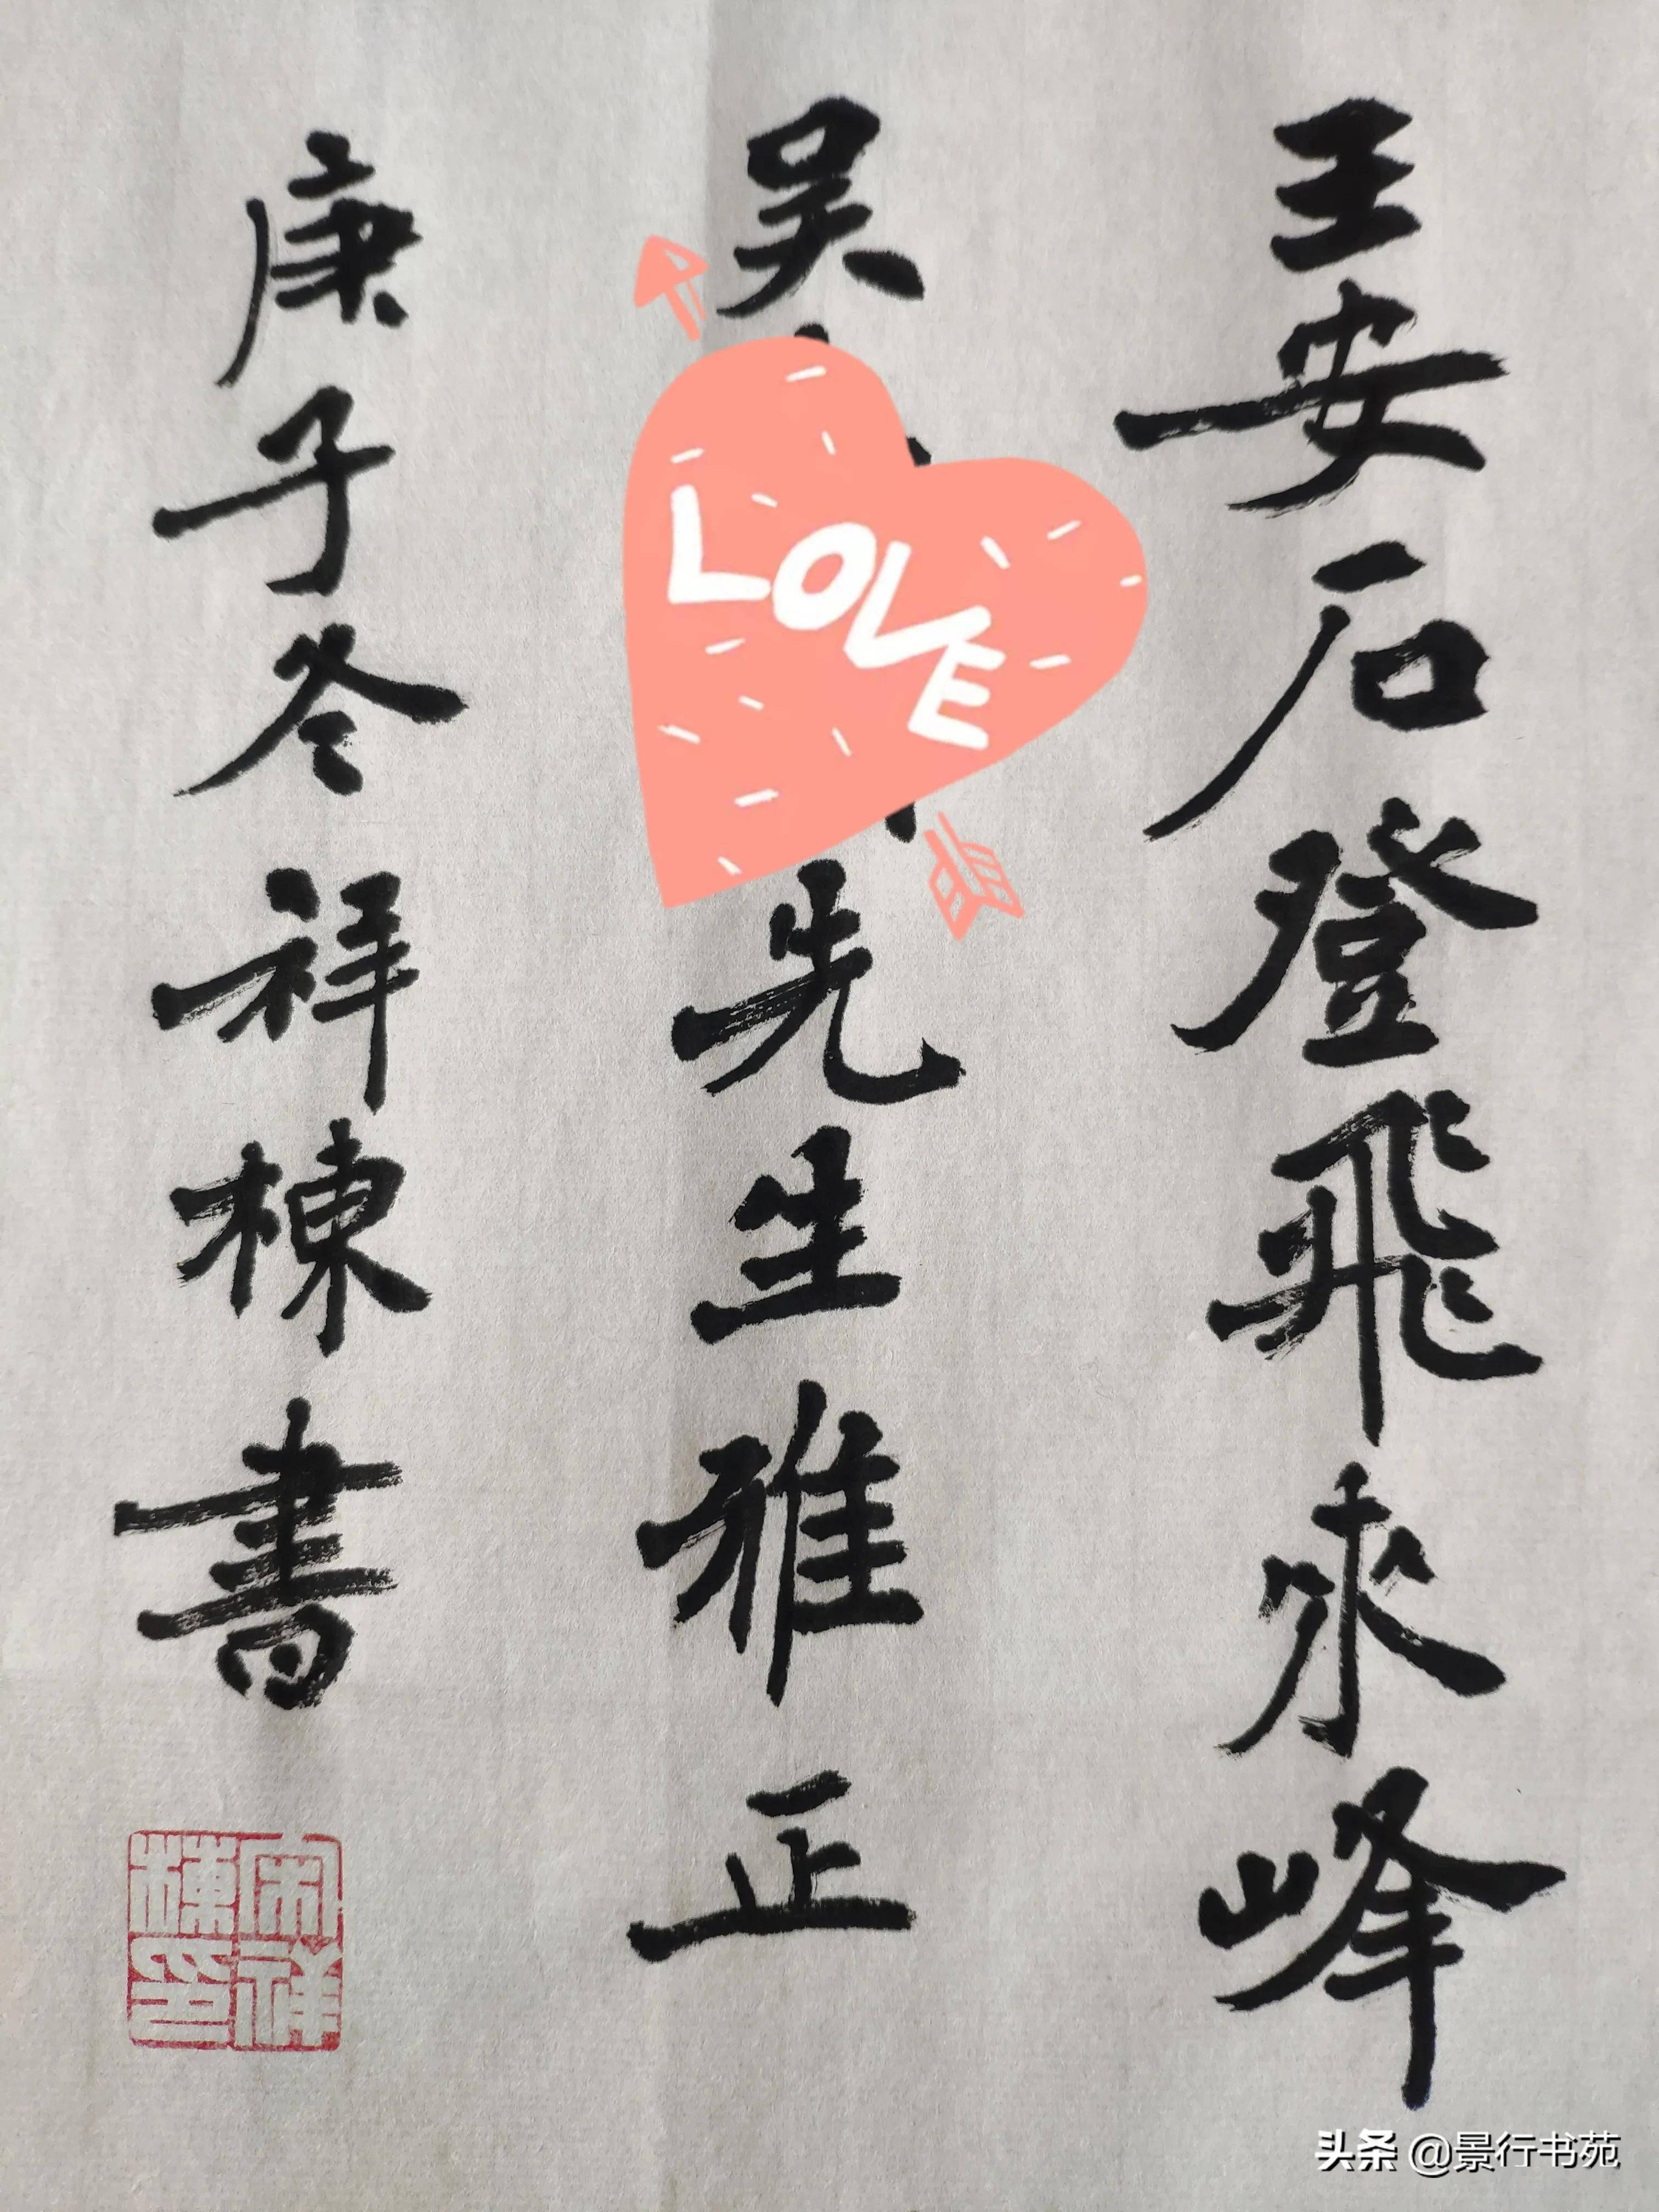 王安石登飛來峰
吴
先生雅正
庚子冬祥棟書
LOVE
头条 @景行书苑